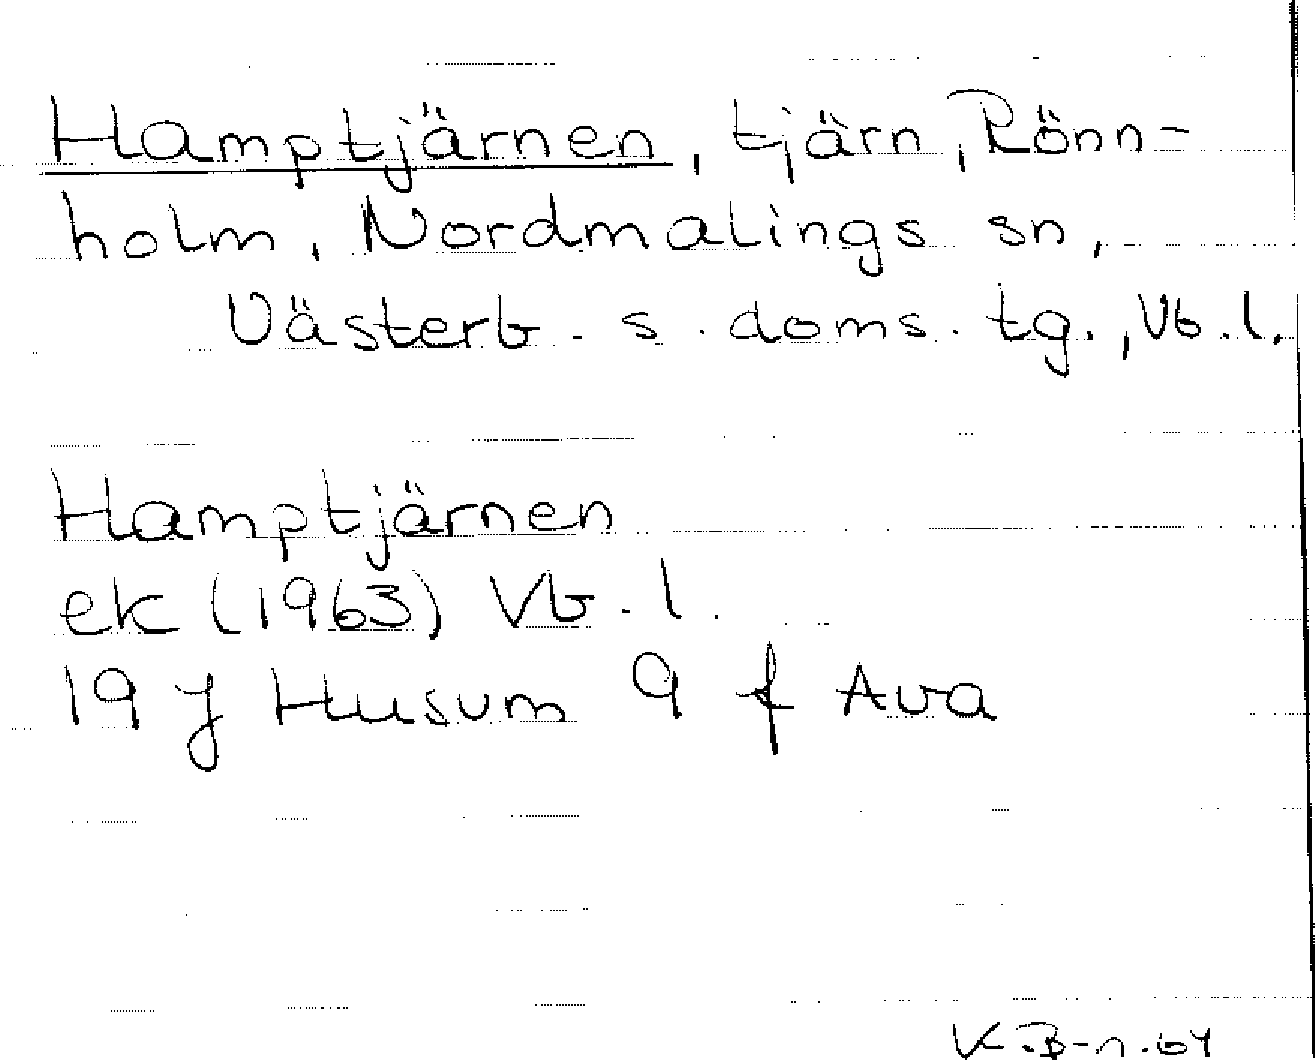 Hamptjärnen, tjärn, Rönn=
holm, Nordmalings sn,
Västerb. s. doms. tg., Vb. l.
Hamptjärnen
ek (1963) Vb. l.
19 J Husum 9 f Ava
K.B-n.64